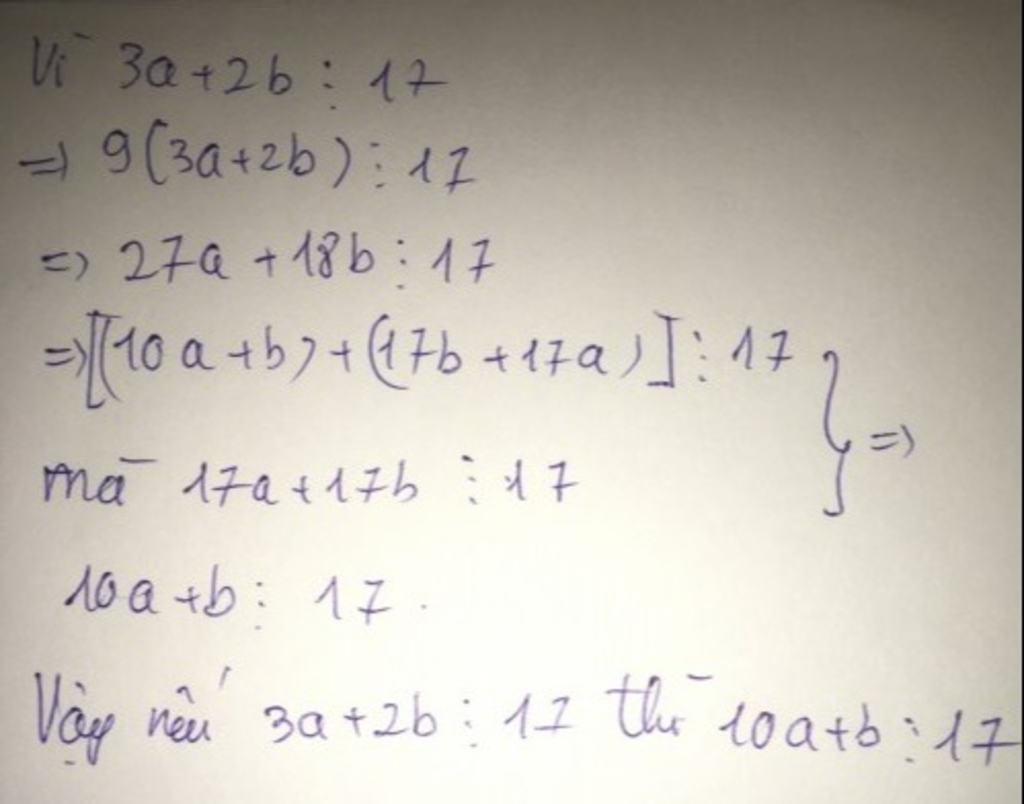 Vì 3a+2b ⋮ 17
=> 9(3a+2b) ⋮ 17
=> 27a + 18b ⋮ 17
=> [(10a+b) + (17b+17a)] ⋮ 17 } =>
mà 17a+17b ⋮ 17
10a+b ⋮ 17.
Vậy nếu 3a+2b ⋮ 17 thì 10a+b ⋮ 17